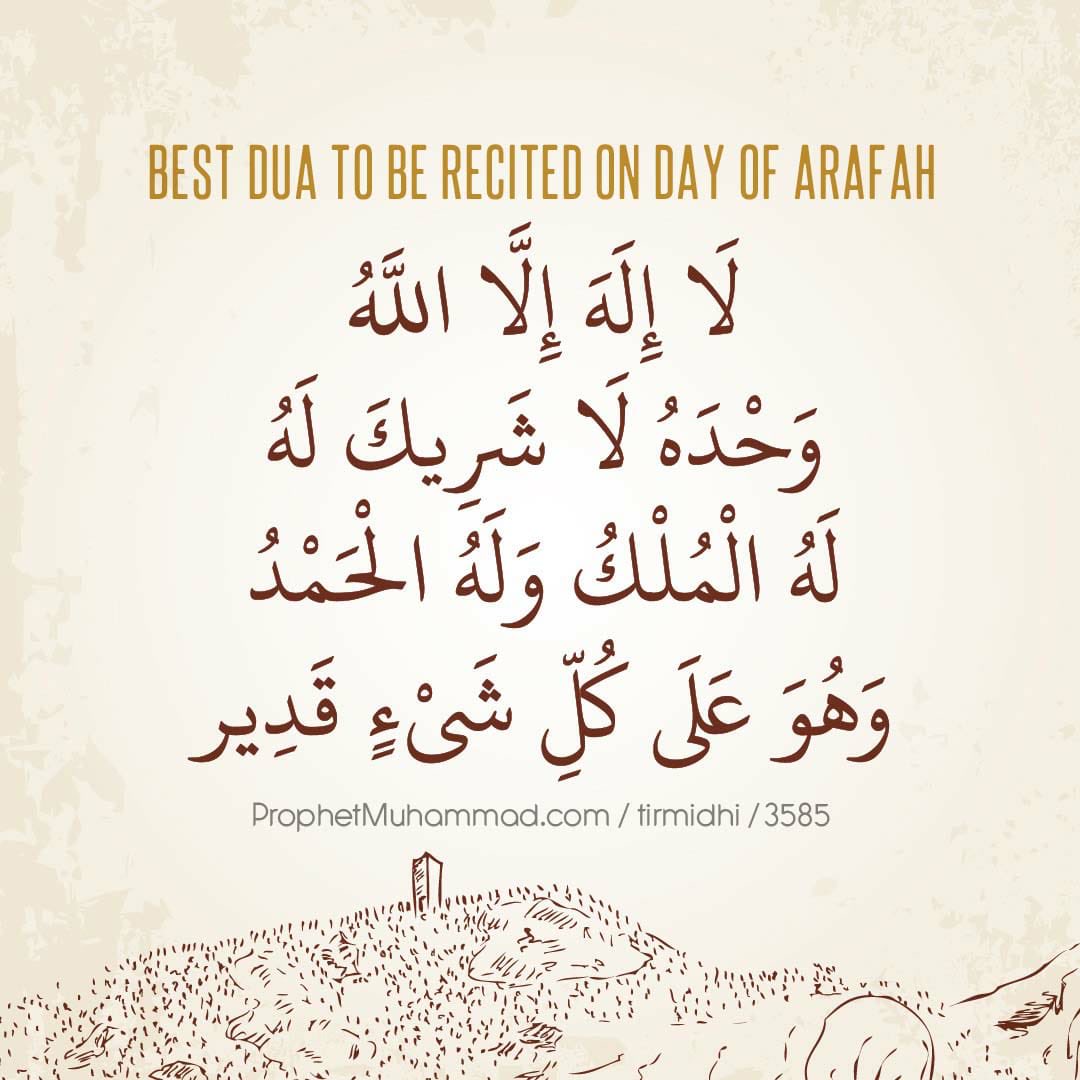 BEST DUA TO BE RECITED ON DAY OF ARAFAH
لَا إِلَهَ إِلَّا اللَّهُ
وَحْدَهُ لَا شَرِيكَ لَهُ
لَهُ الْمُلْكُ وَلَهُ الْحَمْدُ
وَهُوَ عَلَى كُلِّ شَىْءٍ قَدِير
ProphetMuhammad.com / tirmidhi / 3585